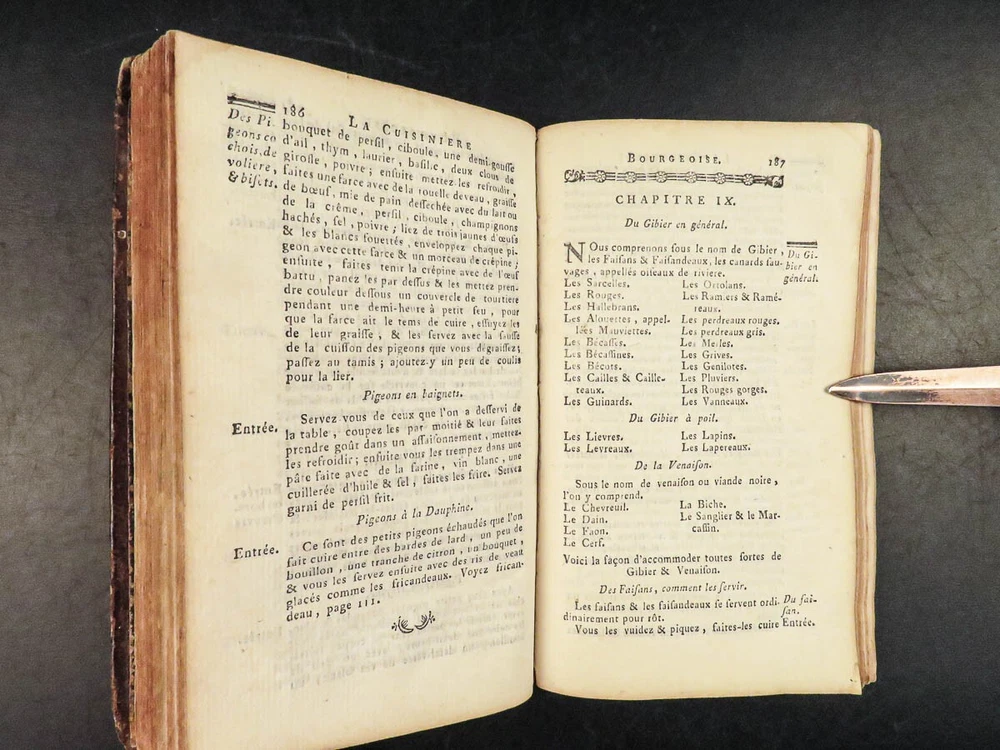 186 LA CUISINIERE
Des Pi-
geons co
chois, de
voliere,
& bisets.
bouquet de persil, ciboule, une demi-gousse
d'ail, thym, laurier, basilic, deux clous de
girofle, poivre; ensuite mettez-les refroidir,
faites une farce avec de la rouelle de veau, graisse
de bœuf, mie de pain desséchée avec du lait ou
de la crême, persil, ciboule, champignons
hachés, sel, poivre; liez de trois jaunes d'œufs
& les blancs fouettés, enveloppez chaque pi-
geon avec cette farce & un morceau de crêpine;
ensuite, faites tenir la crêpine avec de l'œuf
battu, panez les par dessus & les mettez pren-
dre couleur dessous un couvercle de tourtiere
pendant une demi-heure à petit feu, pour
que la farce ait le tems de cuire, essuyez les
de leur graisse, & les servez avec la sausse
de la cuisson des pigeons que vous dégraissez;
passez au tamis; ajoutez-y un peu de coulis
pour la lier.
Pigeons en baignets.
Entrée.
Servez vous de ceux que l'on a desservi de
la table, coupez les par moitié & leur faites
prendre goût dans un assaisonnement, mettez-
les refroidir; ensuite vous les trempez dans une
pâte faite avec de la farine, vin blanc, une
cuillerée d'huile & sel, faites les frire. Servez
garni de persil frit.
Pigeons à la Dauphine.
Entrée.
Ce sont des petits pigeons échaudés que l'on
fait cuire entre des bardes de lard, un peu de
bouillon, une tranche de citron, un bouquet,
& vous les servez ensuite avec des ris de veau
glacés comme les fricandeaux. Voyez frican-
deau, page 111.
BOURGEOISE. 187
CHAPITRE IX.
Du Gibier en général.
NOus comprenons sous le nom de Gibier,
les Faisans & Faisandeaux, les canards sau-
vages, appellés oiseaux de riviere.
Du Gi-
bier en
général.
Les Sarcelles.
Les Rouges.
Les Hallebrans.
Les Alouettes, appel-
lées Mauviettes.
Les Bécasses.
Les Bécassines.
Les Bécots.
Les Cailles & Caille-
teaux.
Les Guinards.
Les Ortolans.
Les Ramiers & Ramé-
reaux.
Les perdreaux rouges.
Les perdreaux gris.
Les Merles.
Les Grives.
Les Genilotes.
Les Pluviers.
Les Rouges gorges.
Les Vanneaux.
Du Gibier à poil.
Les Lievres.
Les Levreaux.
Les Lapins.
Les Lapereaux.
De la Venaison.
Sous le nom de venaison ou viande noire,
l'on y comprend.
Le Chevreuil.
Le Dain.
Le Faon.
Le Cerf.
La Biche.
Le Sanglier & le Mar-
cassin.
Voici la façon d'accommoder toutes sortes de
Gibier & Venaison.
Des Faisans, comment les servir.
Les faisans & les faisandeaux se servent ordi-
dinairement pour rôt.
Du fai-
san.
Vous les vuidez & piquez, faites-les cuire
Entrée.